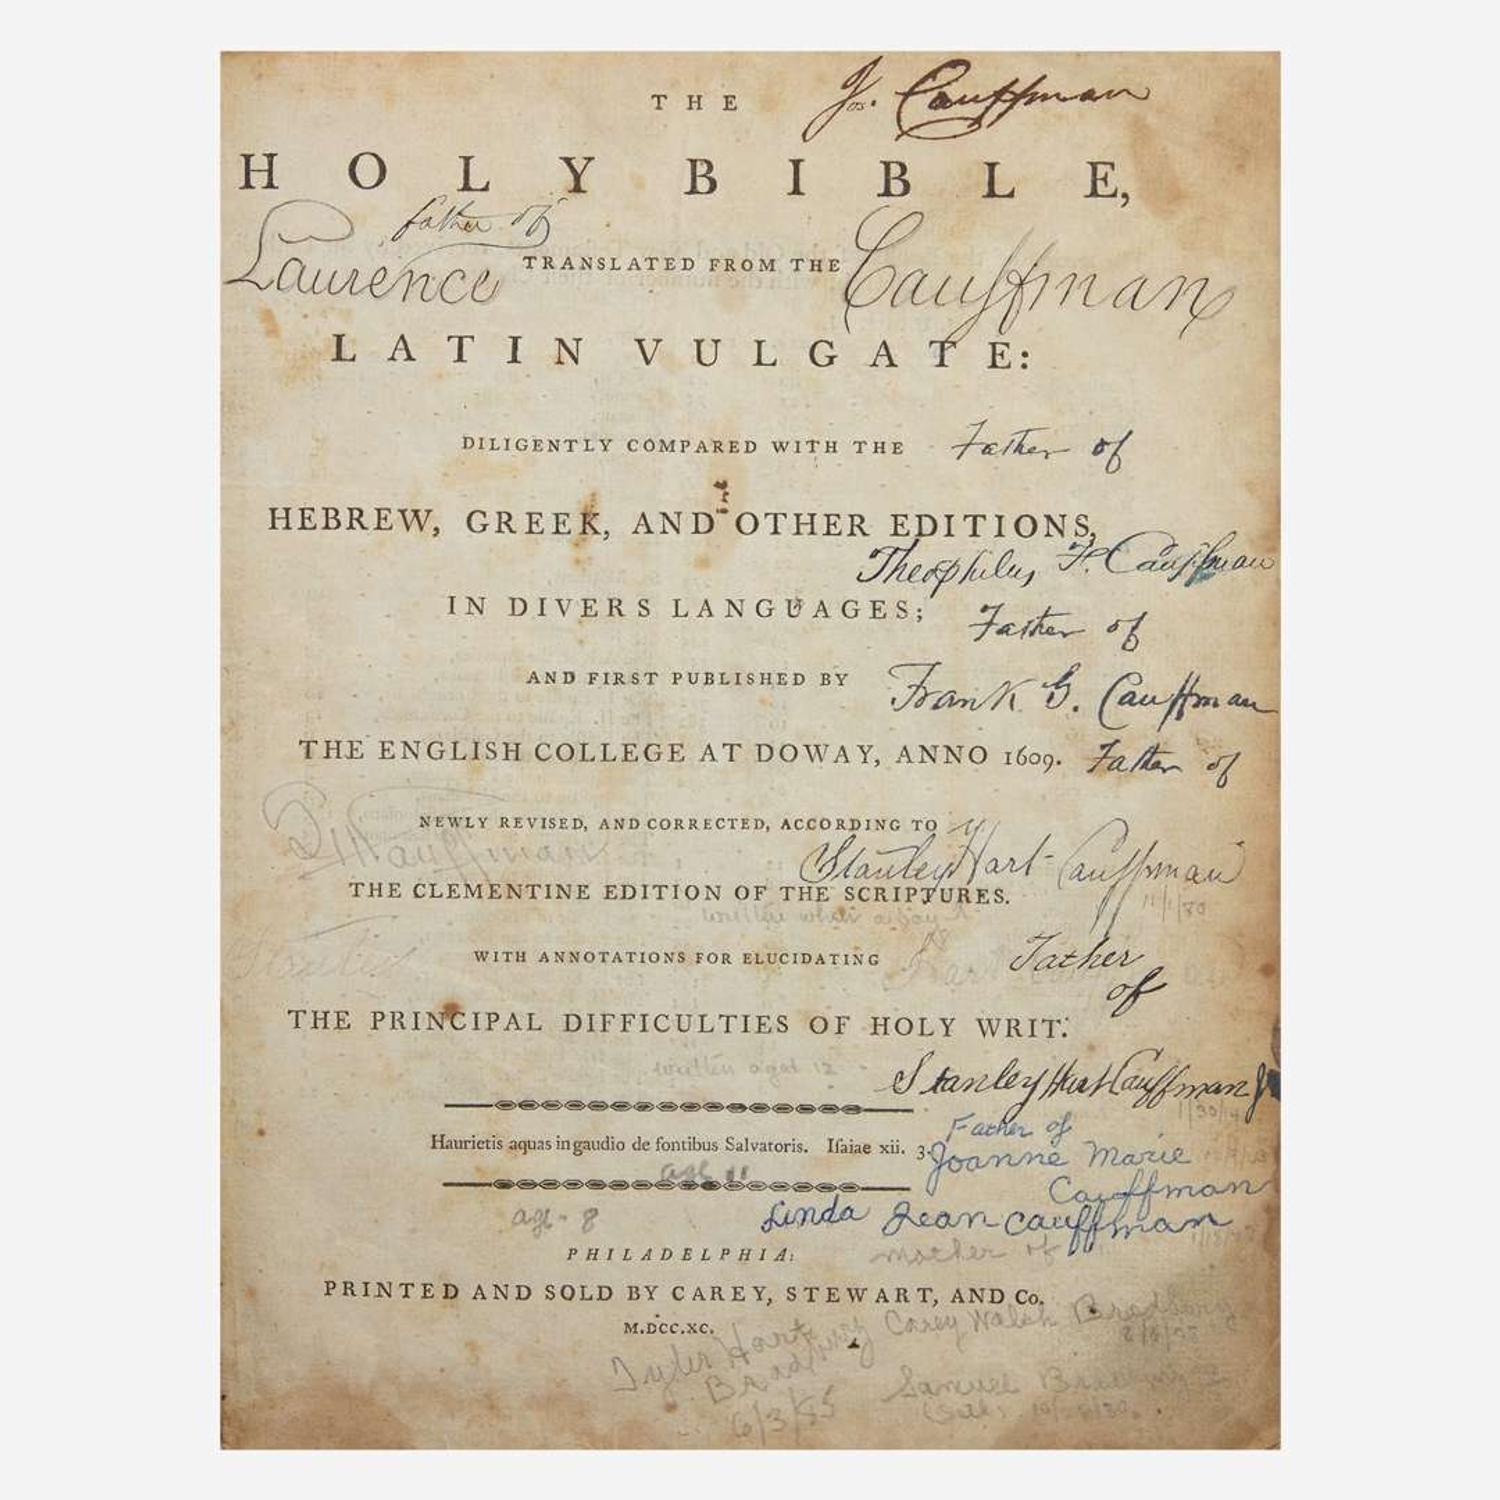 THE Jos. Cauffman
HOLY BIBLE,
father of
Laurence TRANSLATED FROM THE Cauffman
LATIN VULGATE:
DILIGENTLY COMPARED WITH THE Father of
HEBREW, GREEK, AND OTHER EDITIONS,
Theophilus F. Cauffman
IN DIVERS LANGUAGES; Father of
AND FIRST PUBLISHED BY Frank G. Cauffman
THE ENGLISH COLLEGE AT DOWAY, ANNO 1609. Father of
NEWLY REVISED, AND CORRECTED, ACCORDING TO
Cauffman Stanley Hart Cauffman
THE CLEMENTINE EDITION OF THE SCRIPTURES. 11/1/80
written when a boy
WITH ANNOTATIONS FOR ELUCIDATING Father
of
THE PRINCIPAL DIFFICULTIES OF HOLY WRIT.
written aged 12
Stanley Hart Cauffman Jr
Father of
Haurietis aquas in gaudio de fontibus Salvatoris. Isaiae xii. 3. Joanne Marie
age 11 Cauffman
age - 8 Linda Jean Cauffman
PHILADELPHIA: mother of
PRINTED AND SOLD BY CAREY, STEWART, AND Co.
M.DCC.XC. Carey Walsh Bradbury
Tyler Hart
Bradbury Samuel Bradbury
6/3/85